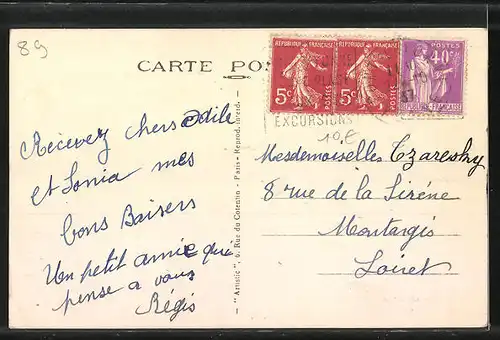 89
CARTE POS
REPUBLIQUE FRANÇAISE
5c
POSTES
REPUBLIQUE FRANÇAISE
5c
POSTES
POSTES
40c
REPUBLIQUE FRANÇAISE
EXCURSIONS
Recevez chers Odile
et Sonia mes
bons Baisers
Un petit amie que
pense a vous
Régis
"Artistic", 6, Rue du Cotentin - Paris - Reprod. Interd.
Mesdemoiselles Tzaresky
8 rue de la Sirène
Montargis
Loiret